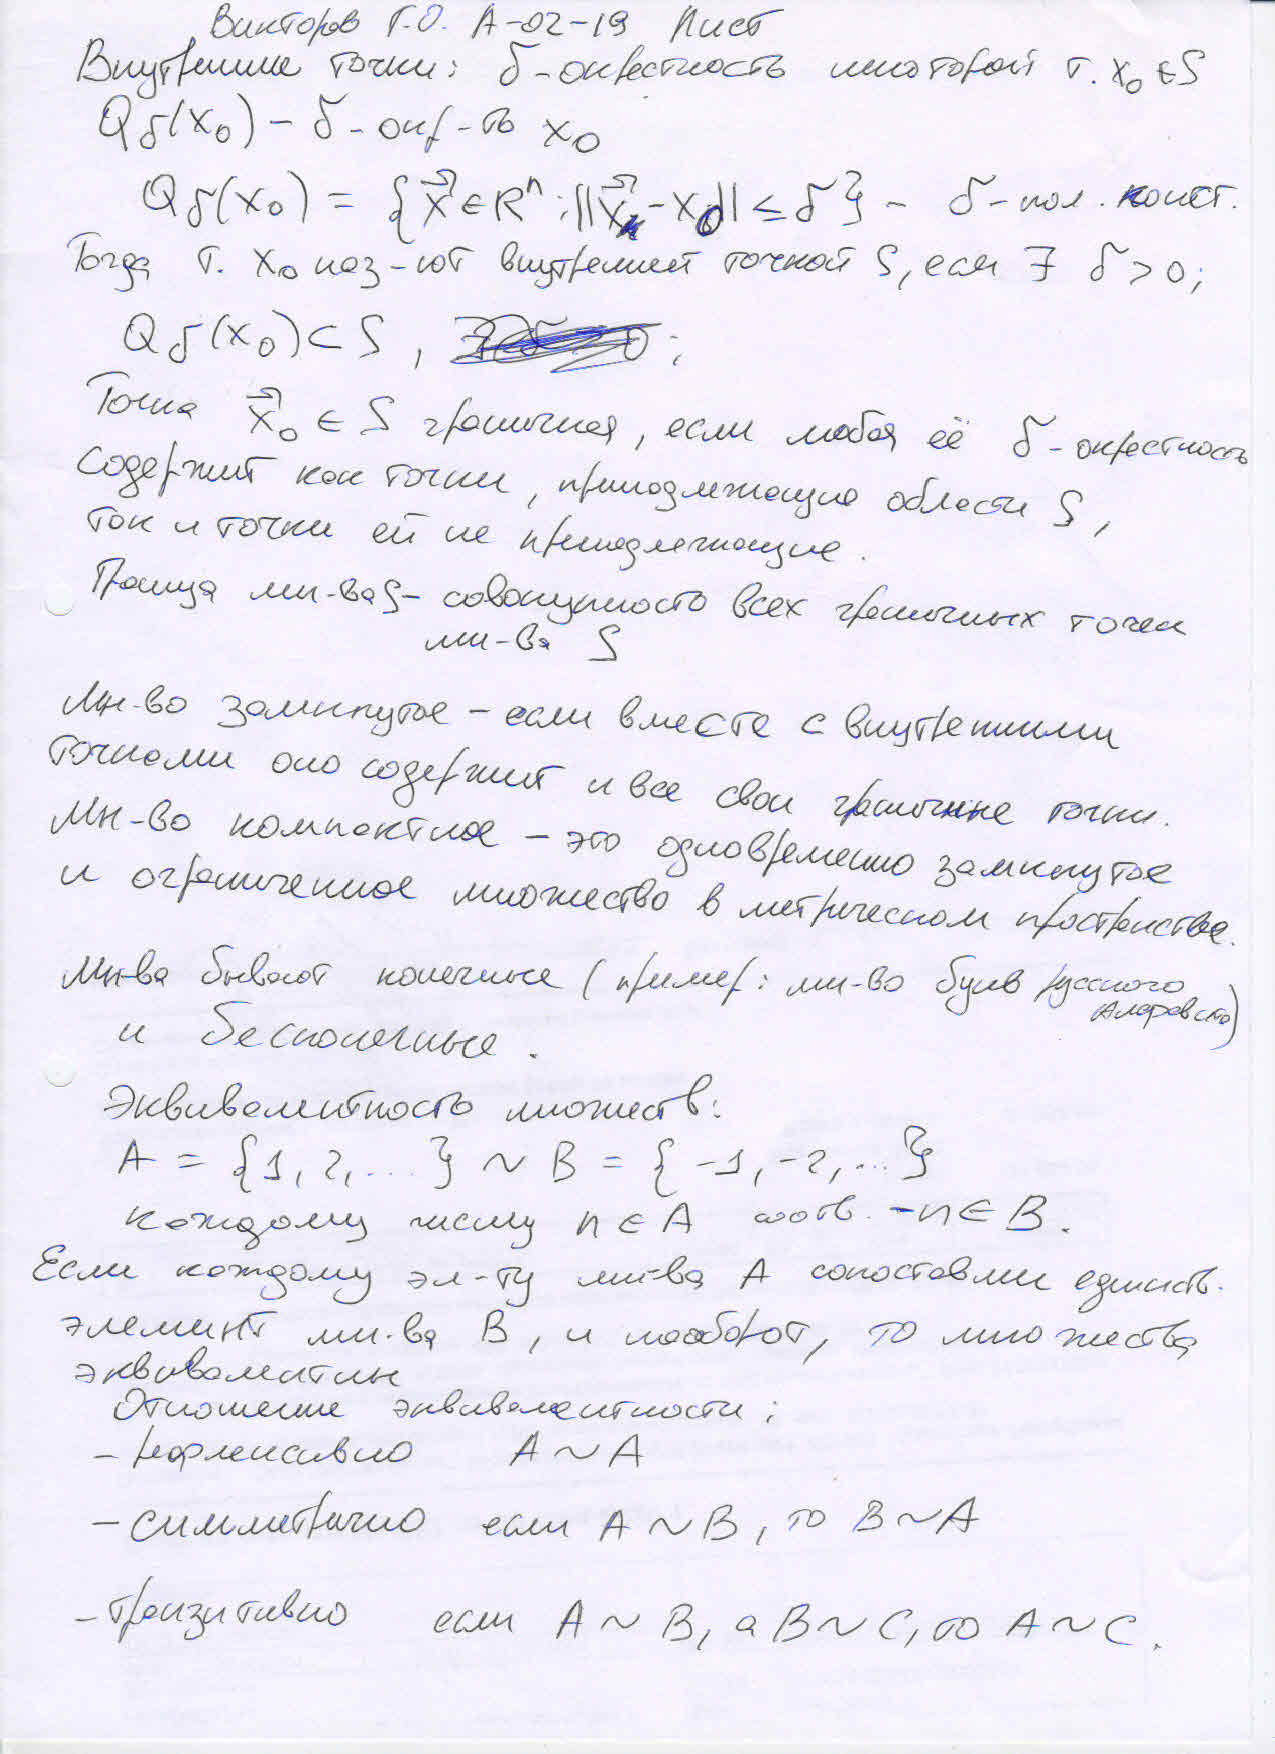 Викторов Г.О. А-02-19 Лист
Внутренние точки: δ-окрестность некоторой т. x₀ ∈ S
Qδ(x₀) – δ-окр-ть x₀
Qδ(x₀) = {x⃗ ∈ Rⁿ : ||x⃗ - x₀|| ≤ δ} – δ-пол. конст.
Тогда т. x₀ наз-ют внутренней точкой S, если ∃ δ > 0;
Qδ(x₀) ⊂ S, ;
Точка x⃗₀ ∈ S граничная, если любая её δ-окрестность
содержит как точки, принадлежащие области S,
так и точки ей не принадлежащие.
Граница мн-ва S – совокупность всех граничных точек
мн-ва S
Мн-во замкнутое – если вместе с внутренними
точками оно содержит и все свои граничные точки.
Мн-во компактное – это одновременно замкнутое
и ограниченное множество в метрическом пространстве.
Мн-ва бывают конечные (пример: мн-во букв русского
алфавита)
и бесконечные.
Эквивалентность множеств:
A = {1, 2, ... } ~ B = { -1, -2, ... }
каждому числу n ∈ A соотв. -n ∈ B.
Если каждому эл-ту мн-ва A сопоставим единств.
элемент мн-ва B, и наоборот, то множества
эквивалентны
Отношение эквивалентности:
- рефлексивно A ~ A
- симметрично если A ~ B, то B ~ A
- транзитивно если A ~ B, а B ~ C, то A ~ C.